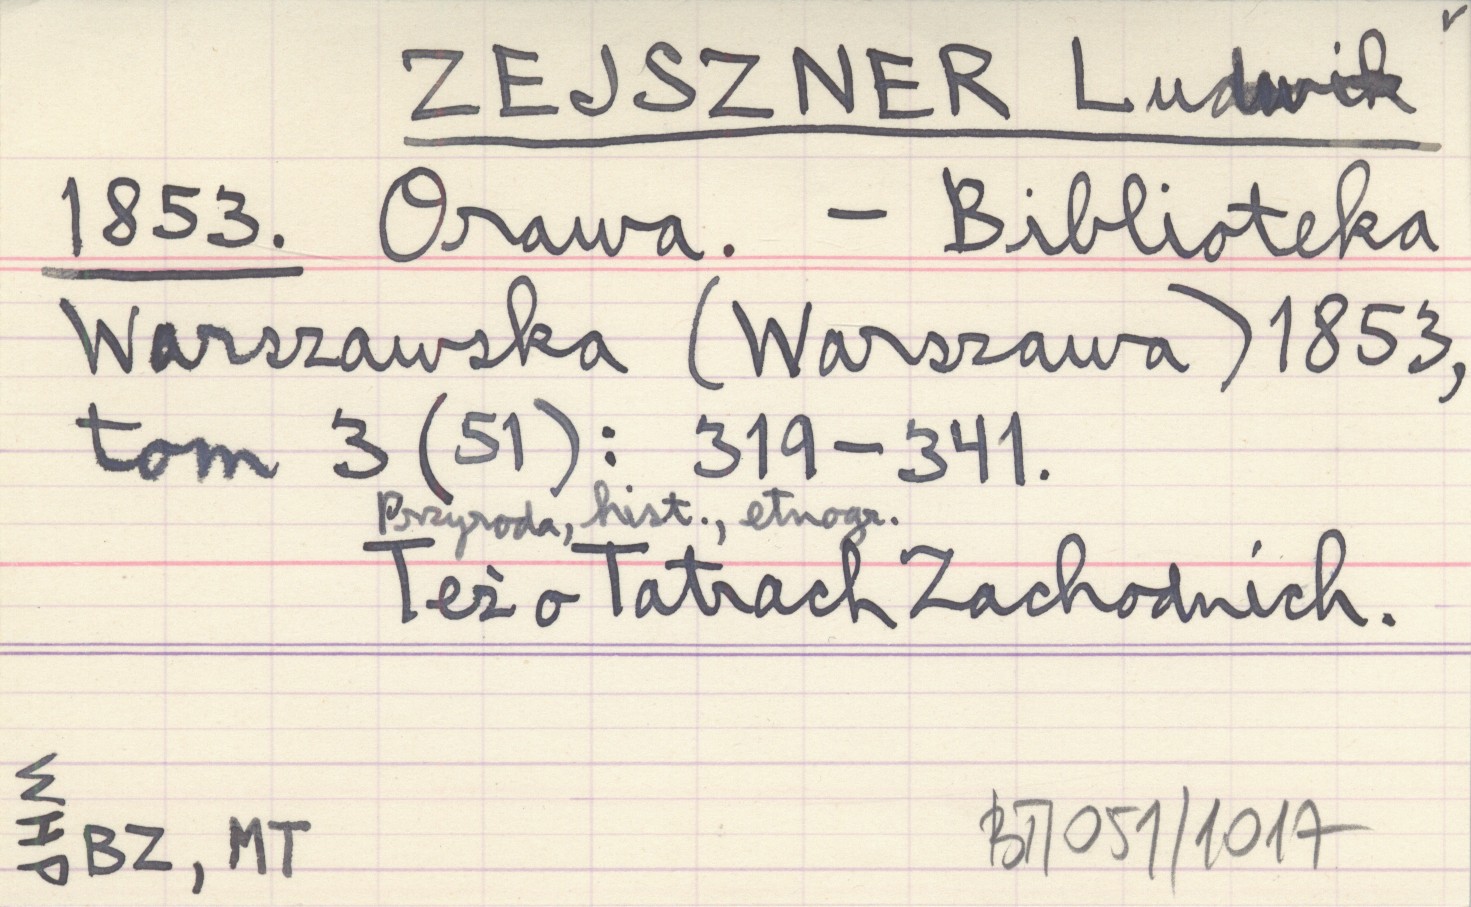 ZEJSZNER Ludwik
1853. Orawa. – Biblioteka
Warszawska (Warszawa) 1853,
tom 3 (51): 319–341.
Przyroda, hist., etnogr.
Też o Tatrach Zachodnich.
BZ, MT